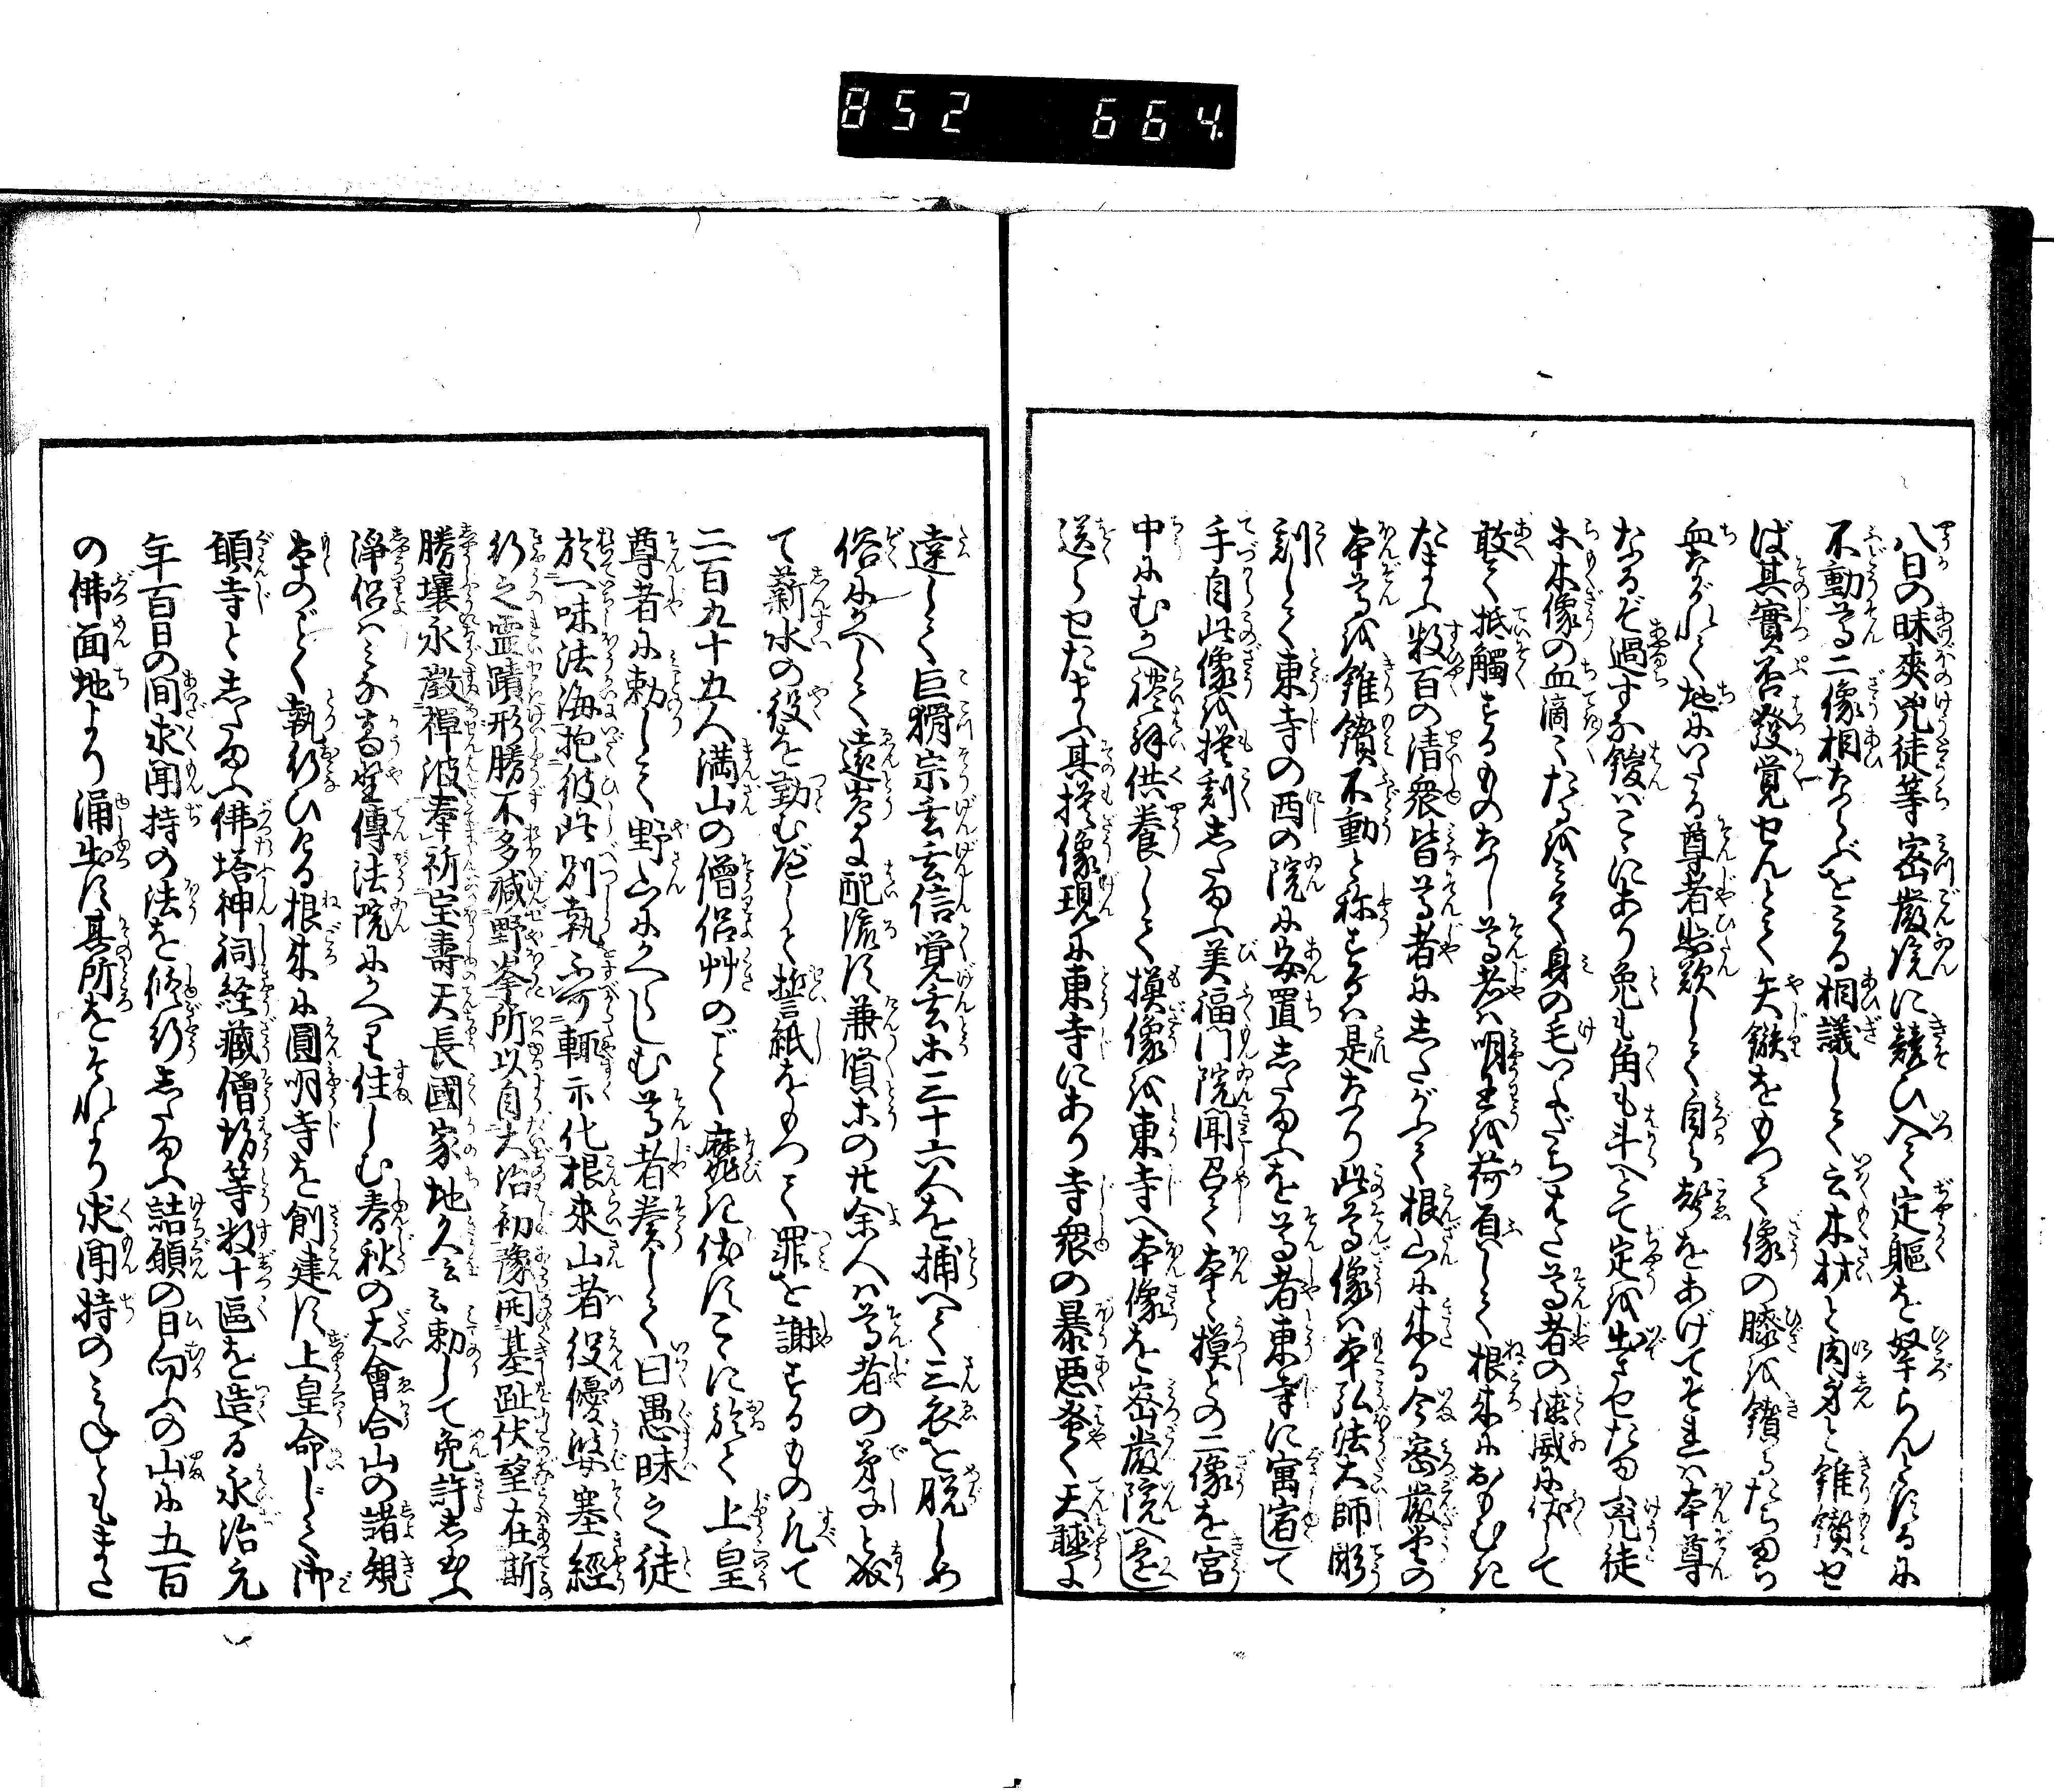 852 664
八日の昧爽兇徒等密嚴院に競ひ入て定軀を孥らんとするに
不動尊二像相ならぶをミる相議して云木材と肉身と錐鑚せ
ば其實否發覚せんとて矢鏃をもつて像の膝を鑚るたちまち
血ながれて地にいたる尊者悲歎して自ら聲をあげてそれハ本尊
なるぞ過すな鑁ハこゝにあり兔も角も計へとて定を出させたまふ兇徒
等木像の血滴こたるを見て身の毛いよだちまた尊者の徳威に伏して
敢て抵觸するものなし尊者ハ明王を荷負して根来におもむき
たまふ数百の清衆皆尊者にしたがふて根山に来る今密嚴堂の
本尊を錐鑚不動と称するハ是なり此尊像ハ本弘法大師彫
刻して東寺の西の院に安置したまふを尊者東寺に寓宿して
手自此像を摸刻したまふ美福門院聞召て本と摸との二像を宮
中にむかへ禮拜供養して摸像を東寺へ本像を密嚴院へ還し
送らせたまふ其摸像現に東寺にあり寺衆の暴悪蚤く天聴に
達して巨猾宗玄玄信覚玄等三十六人を捕へて三衣を脱しめ
俗にかへして遠嶋に配流す兼賢等の廿余人ハ尊者の弟子と成
て薪水の役を勤むべしと誓紙をもつて罪を謝するもの凡て
二百九十五人満山の僧侶艸のごとく靡き伏すこゝに於て上皇
尊者に勅して野山にかへらしむ尊者奏して曰愚昧之徒
於一味法海抱彼此別執不可輙示化根來山者役優婆塞經
行之霊蹟形勝不多減野峯所以自大治初豫開基趾伏望在斯
勝壤永澂禅波奉祈宝壽天長國家地久云云勅して免許したまふ
淨侶ハミな高野傳法院にかへり住しむ春秋の大會合山の諸規
もとのごとく執行ひたる根来に圓明寺を創建す上皇命じて御
願寺としたまふ佛塔神祠経蔵僧坊等数十區を造る永治元
年百日の間求聞持の法を修行したまふ結願の日向ふの山に五百
の佛面地より涌出す其所をそれより求聞持のミねともまた